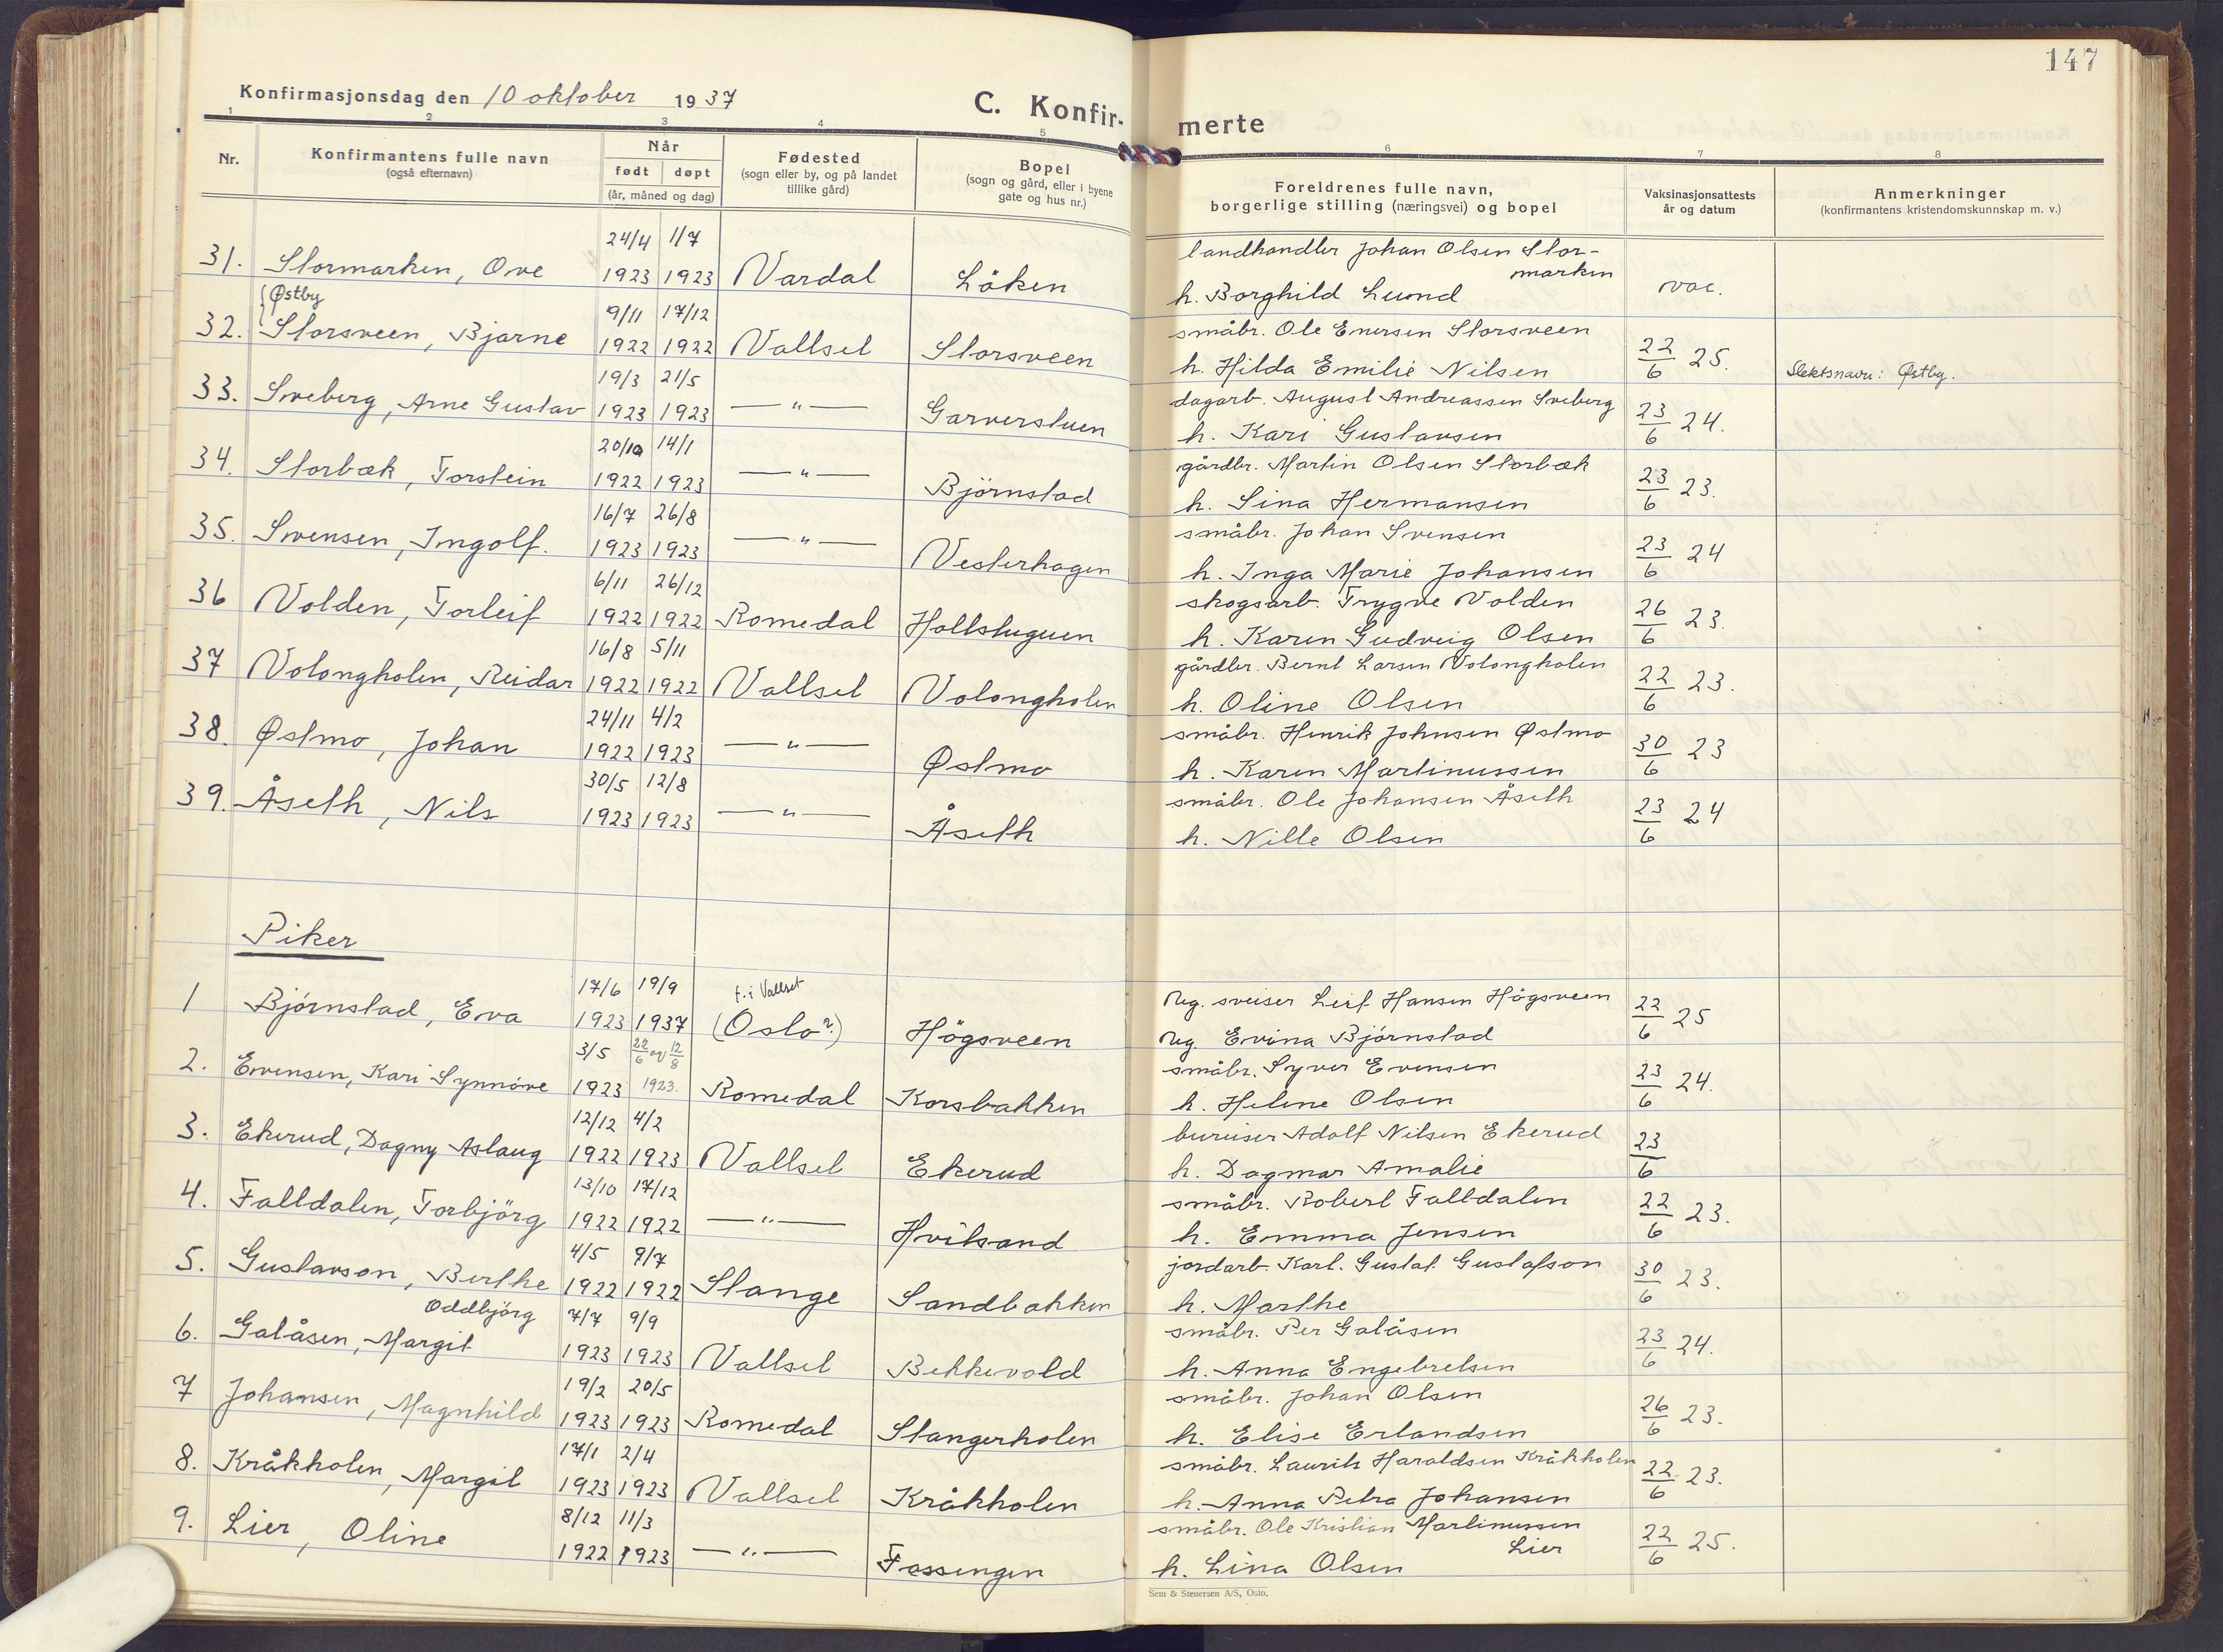 147
Konfirmasjonsdag den 10 oktober 1937
C. Konfir-
merte
1 2 3 4 5 6 7 8
Nr.
Konfirmantens fulle navn
(også efternavn)
Når
født døpt
(år, måned og dag)
Fødested
(sogn eller by, og på landet
tillike gård)
Bopel
(sogn og gård, eller i byene
gate og hus nr.)
Foreldrenes fulle navn,
borgerlige stilling (næringsvei) og bopel
Vaksinasjonsattests
år og datum
Anmerkninger
(konfirmantens kristendomskunnskap m. v.)
24/4 1/7 landhandler Johan Olsen Stor-
marken
31. Stormarken, Ove 1923 1923 Vardal Löken h. Borghild Lund vac.
Østby 9/11 17/12 småbr. Ole Enersen Storsveen
32. Storsveen, Bjarne 1922 1922 Vallset Storsveen h. Hilda Emilie Nilsen 22/6 25. Slektsnavn: Østby.
19/3 21/5 dagarb. August Andreassen Sveberg
33. Sveberg, Arne Gustav 1923 1923 —"— Garverstuen h. Kari Gustavsen 23/6 24.
20/10 14/1 gårdbr. Martin Olsen Storbæk
34. Storbæk, Torstein 1922 1923 —"— Björnstad h. Sina Hermansen 23/6 23.
16/7 26/8 småbr. Johan Svensen
35. Svensen, Ingolf. 1923 1923 —"— Vesterhagen h. Inga Marie Johansen 23/6 24
6/11 26/12 skogsarb. Trygve Volden
36 Volden, Torleif 1922 1922 Romedal Hallstuguen h. Karen Gudveig Olsen 26/6 23.
16/8 5/11 gårdbr. Bernt Larsen Volongholen
37 Volongholen, Reidar 1922 1922 Vallset Volongholen h. Oline Olsen 22/6 23.
24/11 4/2 småbr. Henrik Johnsen Østmo
38. Østmo, Johan 1922 1923 —"— Østmo h. Karen Martinussen 30/6 23
30/5 12/8 småbr. Ole Johansen Åseth
39. Åseth, Nils 1923 1923 —"— Åseth h. Nille Olsen 23/6 24
Piker
17/6 19/9 f. i Vallset Ug. sveiser Leif Hansen Högsveen
1 Björnstad, Eva 1923 1937 (Oslo?) Högsveen Ug. Evina Björnstad 22/6 25
3/5 22/6 og 12/8 småbr. Syver Evensen
2. Evensen, Kari Synnöve 1923 1923. Romedal Korsbakken h. Helene Olsen 23/6 24.
12/12 4/2 bureiser Adolf Nilsen Ekerud
3. Ekerud, Dagny Aslaug 1922 1923 Vallset Ekerud h. Dagmar Amalie 23/6
13/10 17/12 småbr. Robert Falldalen
4. Falldalen, Torbjörg 1922 1922 —"— Hvitsand h. Emma Jensen 22/6 23.
4/5 9/7 jordarb. Karl. Gustaf. Gustafson
5. Gustavson, Berthe 1922 1922 Stange Sandbakken h. Marthe 30/6 23.
Oddbjörg 7/7 9/9 småbr. Per Galåsen
6. Galåsen, Margit 1923 1923 Vallset Bekkevold h. Anna Engebretsen 23/6 24.
19/2 20/5 småbr. Johan Olsen
7 Johansen, Magnhild 1923 1923 Romedal Stangerholen h. Elise Erlandsen 26/6 23.
17/1 2/4 småbr. Laurits Haraldsen Kråkholen
8. Kråkholen, Margit 1923 1923 Vallset Kråkholen h. Anna Petra Johansen 22/6 23.
8/12 11/3 småbr. Ole Kristian Martinussen
Lier
9. Lier, Oline 1922 1923 —"— Fossengen h. Lina Olsen 22/6 25.
Sem & Stenersen A/S, Oslo.